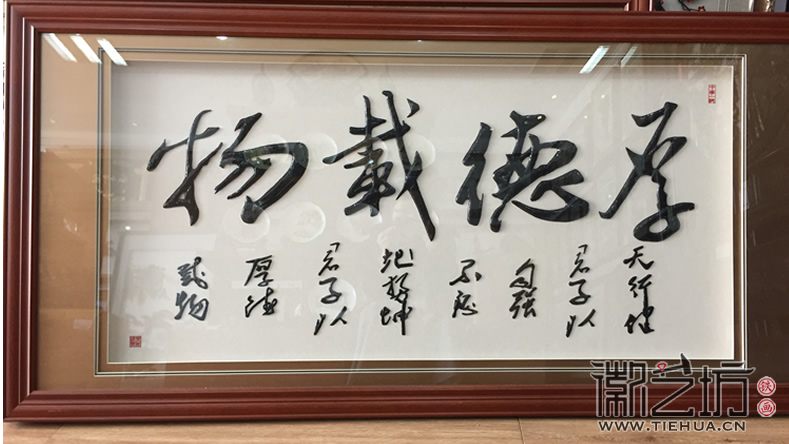 厚德載物
天行健
君子以
自强
不息
地势坤
君子以
厚德
载物
徽艺坊
铁画
WWW.TIEHUA.CN